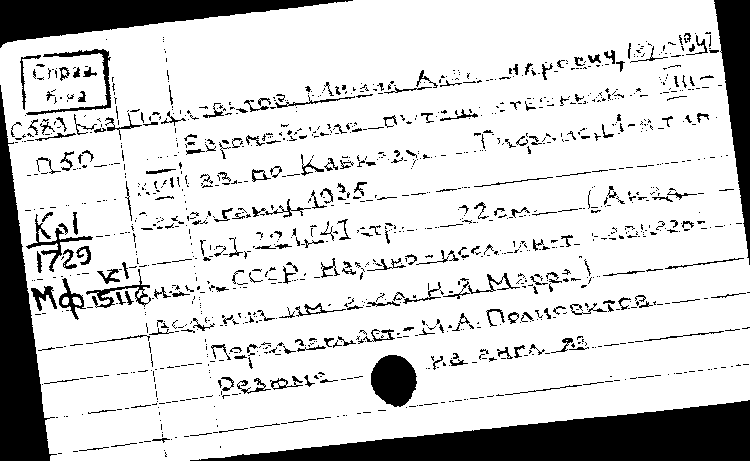 Справ.
б-ка
С589 Кав
П50
Кр1
1729
Мф к1
15116
Полиевктов, Михаил Александрович, 1872-1942
Европейские путешественники XIII-
XVIII вв. по Кавказу. Тифлис, [1-я тип.
Сахелгами], 1935.
[2], 221, [4] стр. 22 см. (Акад.
наук СССР. Научно-иссл. ин-т кавказо-
ведения им. акад. Н.Я. Марра)
Перед загл. авт. - М.А. Полиевктов.
Резюме на англ. яз.